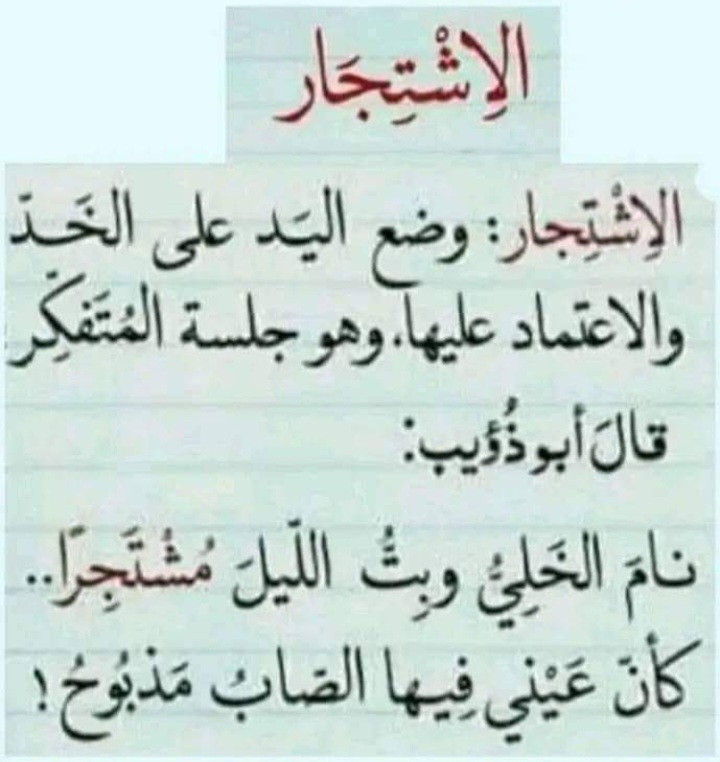 الِاشْتِجَار
الِاشْتِجار: وضع اليَد على الخَدّ
والاعتماد عليها، وهو جلسة المُتَفكِّر
قالَ أبو ذُؤيب:
نامَ الخَلِيُّ وبِتُّ اللّيلَ مُشْتَجِرًا..
كأنّ عَيْني فِيها الصّابُ مَذبُوحُ!